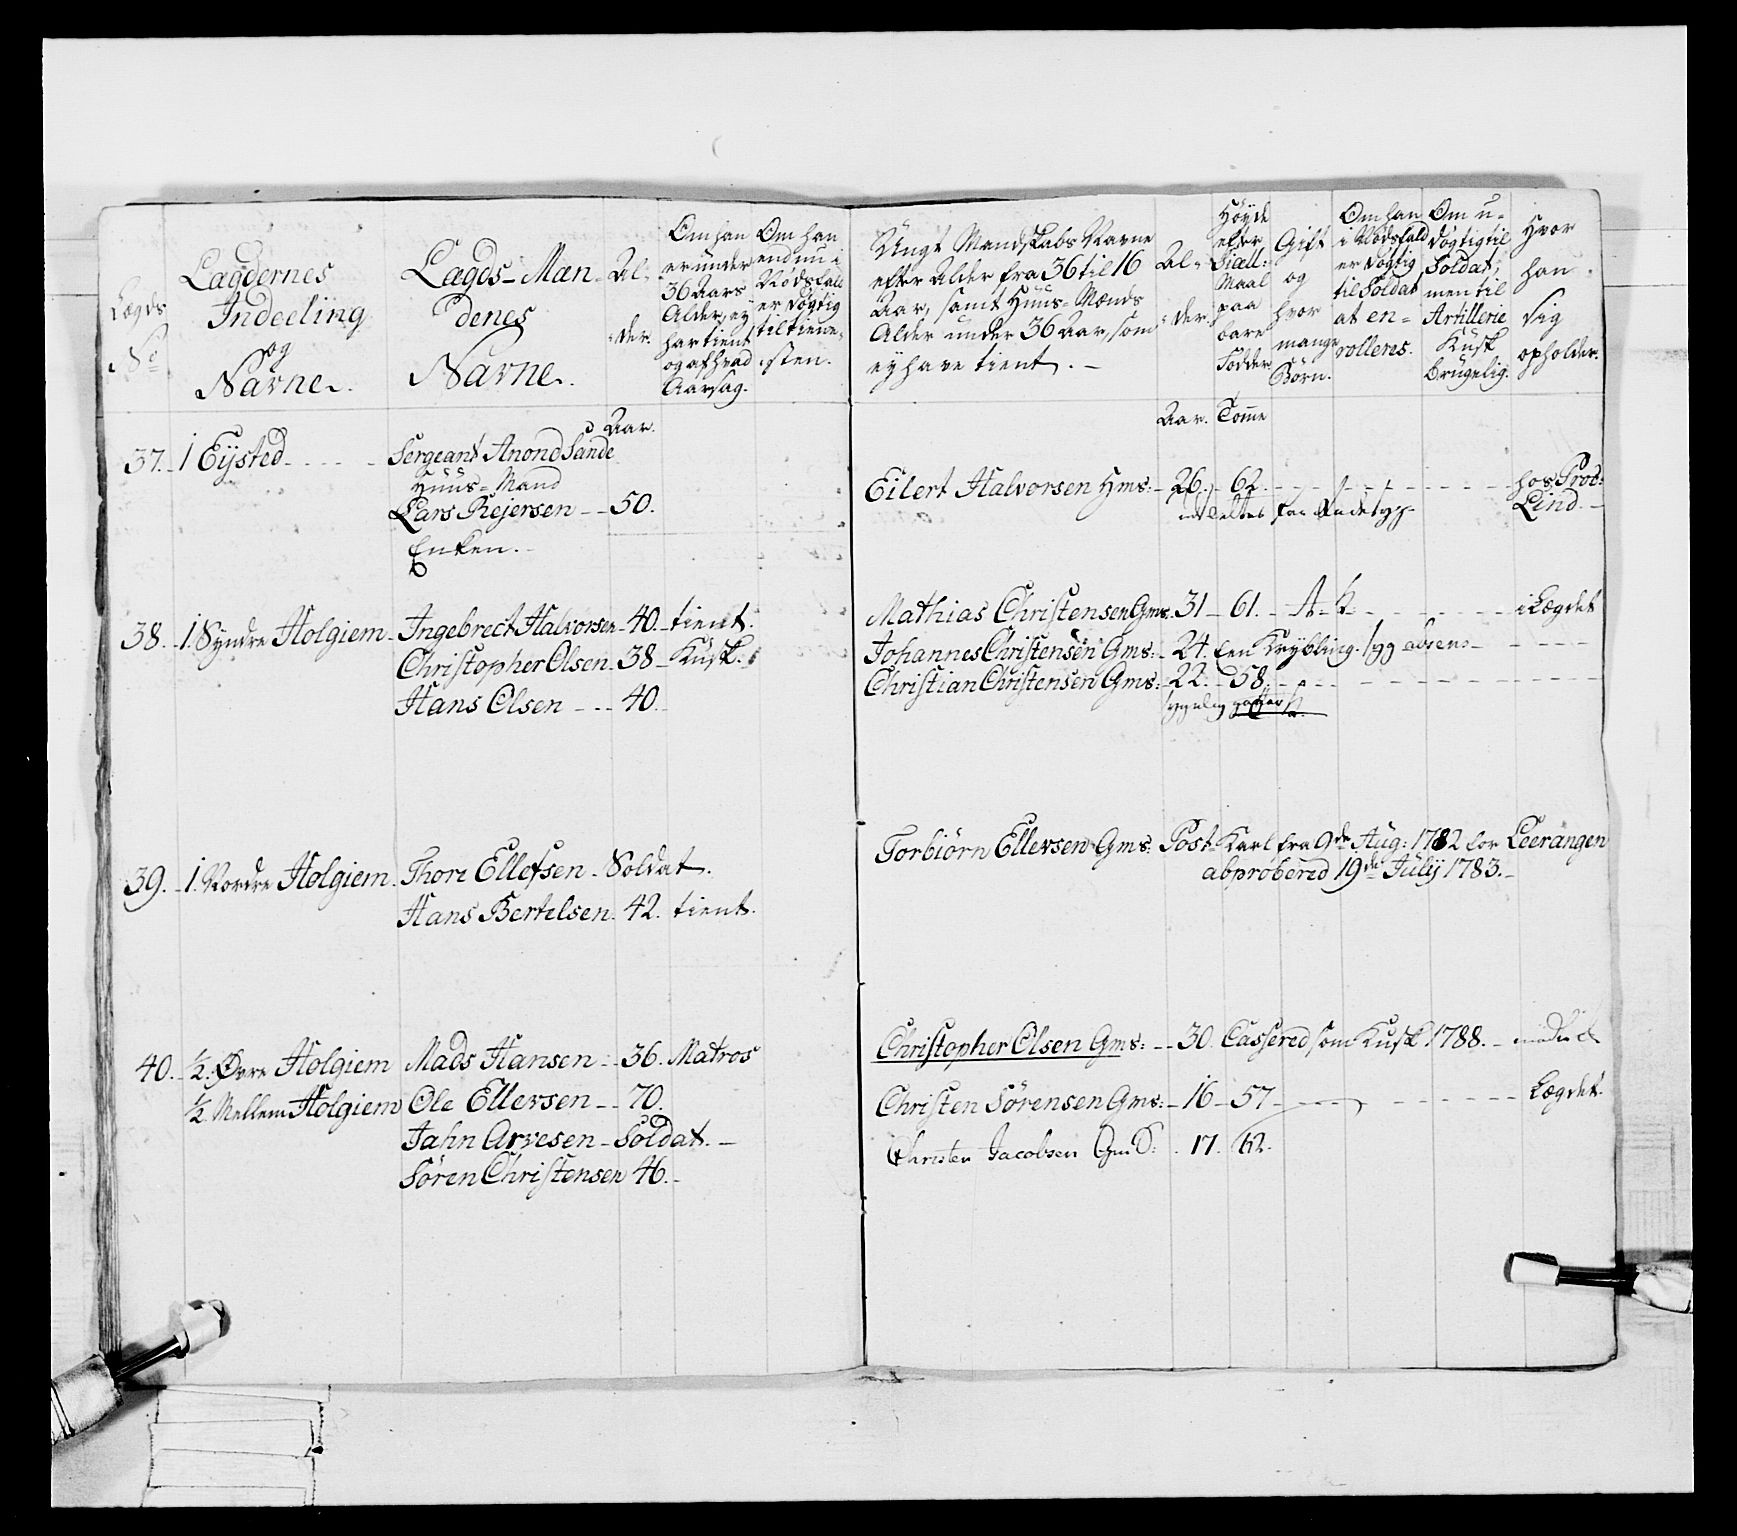 Lægds
No
Lagdernes
Indeeling
og
Navne.
Lagds-Mæn
denes
Navne.
Al-
der.
Om han
er under
36 Aars
Alder, ey
har tient
og af hvad
Aarsag.
Om han
endnu i
Nødsfald
er døgtig
til tiene-
sten.
Ungt Mandskabs Navne
efter Alder fra 36 til 16
Aar, samt Huus-Mænds
Alder under 36 Aar, som
ey have tient.
Al-
der.
Höyde
efter
Siæll:
Maal
paa
bare
Fødder
Gift
og
hvor
mange
Börn.
Om han
i Nödsfald
er døgtig
til Soldat
at en-
rolleres.
Om u-
døgtig til
Soldat,
men til
Artillerie
Kusk
brugelig.
Hvor
han
sig
opholder.
Aar.
Aar. Tomme
37. 1 Eijsted
Sergeant Anond Sande
Huus-Mand
Lars Rejersen - 50.
Enken.
Eilert Halvorsen Hms: 26. 62. hos Prob:
Lind.
38. 1. Syndre Holgiem Ingebrect Halvorsen 40. tient.
Christopher Olsen 38 Kusk.
Hans Olsen - 40.
Mathias Christensen Gms. 31 61. i Lægdet
Johannes Christensen Gms: 24. een Krybling.
Christian Christensen Gms: 22. 58.
39. 1. Nordre Holgiem Thore Ellefsen Soldat.
Hans Bertelsen 42. tient.
Torbiörn Ellevsen Gms: Post-Karl fra 9de Aug: 1782 for Leerangen
abprobered 19de Julij 1783.
40. ½. Øvre Holgiem Mads Hansen 36. Matros
½. Mellem Holgiem Ole Ellevsen - 70.
Jahn Arvesen - Soldat.
Sören Christensen 46.
Christopher Olsen Gms: 30. Cassered som Kusk 1788.
Christen Sörensen Gms: 16 57 Lægdet.
Christen Jacobsen GmS: 17. 62.